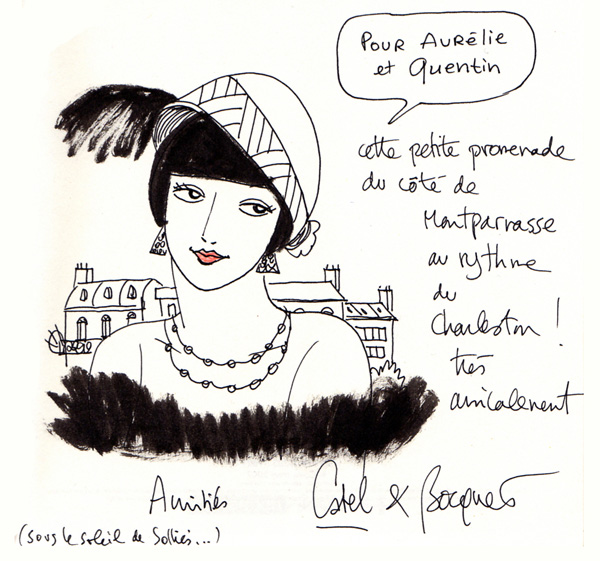 POUR AURÉLIE
et QUENTIN
cette petite promenade
du côté de
Montparnasse
au rythme
du
Charleston !
très
amicalement
Amitiés
Catel & Bocquet
(sous le soleil de Solliès...)